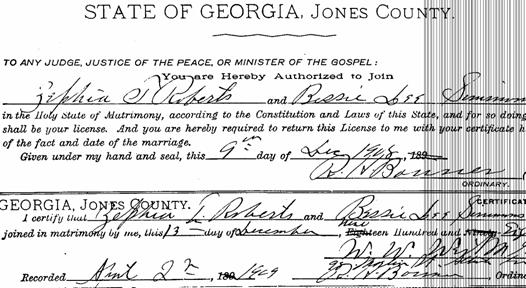 STATE OF GEORGIA, JONES COUNTY.
TO ANY JUDGE, JUSTICE OF THE PEACE, OR MINISTER OF THE GOSPEL:
You are Hereby Authorized to Join
Zephia T Roberts and Bessie Lee Simmons
in the Holy State of Matrimony, according to the Constitution and Laws of this State, and for so doing
shall be your license. And you are hereby required to return this License to me with your certificate h
of the fact and date of the marriage.
Given under my hand and seal, this 9th day of Dec 1908, 189
Bonner
ORDINARY.
GEORGIA, JONES COUNTY. CERTIFICAT
I certify that Zephia T Roberts and Bessie Lee Simmons
joined in matrimony by me, this 13 day of December, Eighteen Hundred and Ninety
W. W.
Recorded 2nd, 189 1909 Bonner, Ordin